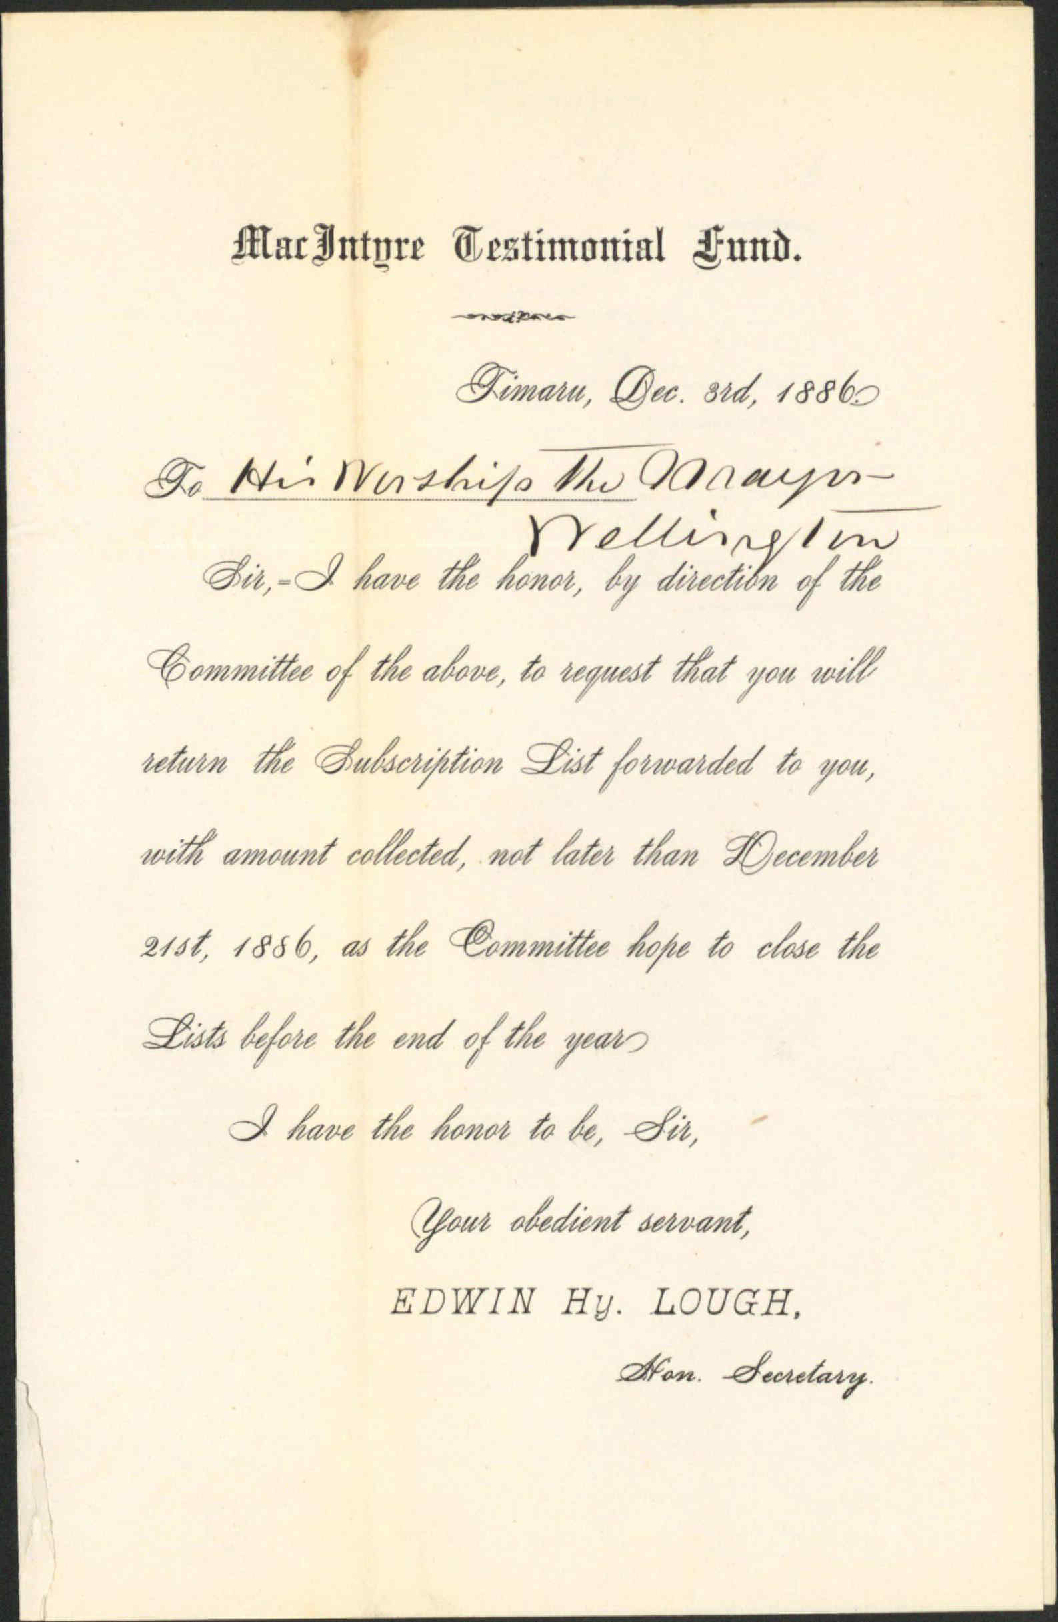 MacIntyre Testimonial Fund.
Timaru, Dec. 3rd, 1886.
To His Worship The Mayor
Wellington
Sir,=I have the honor, by direction of the
Committee of the above, to request that you will
return the Subscription List forwarded to you,
with amount collected, not later than December
21st, 1886, as the Committee hope to close the
Lists before the end of the year
I have the honor to be, Sir,
Your obedient servant,
EDWIN Hy. LOUGH,
Hon. Secretary.